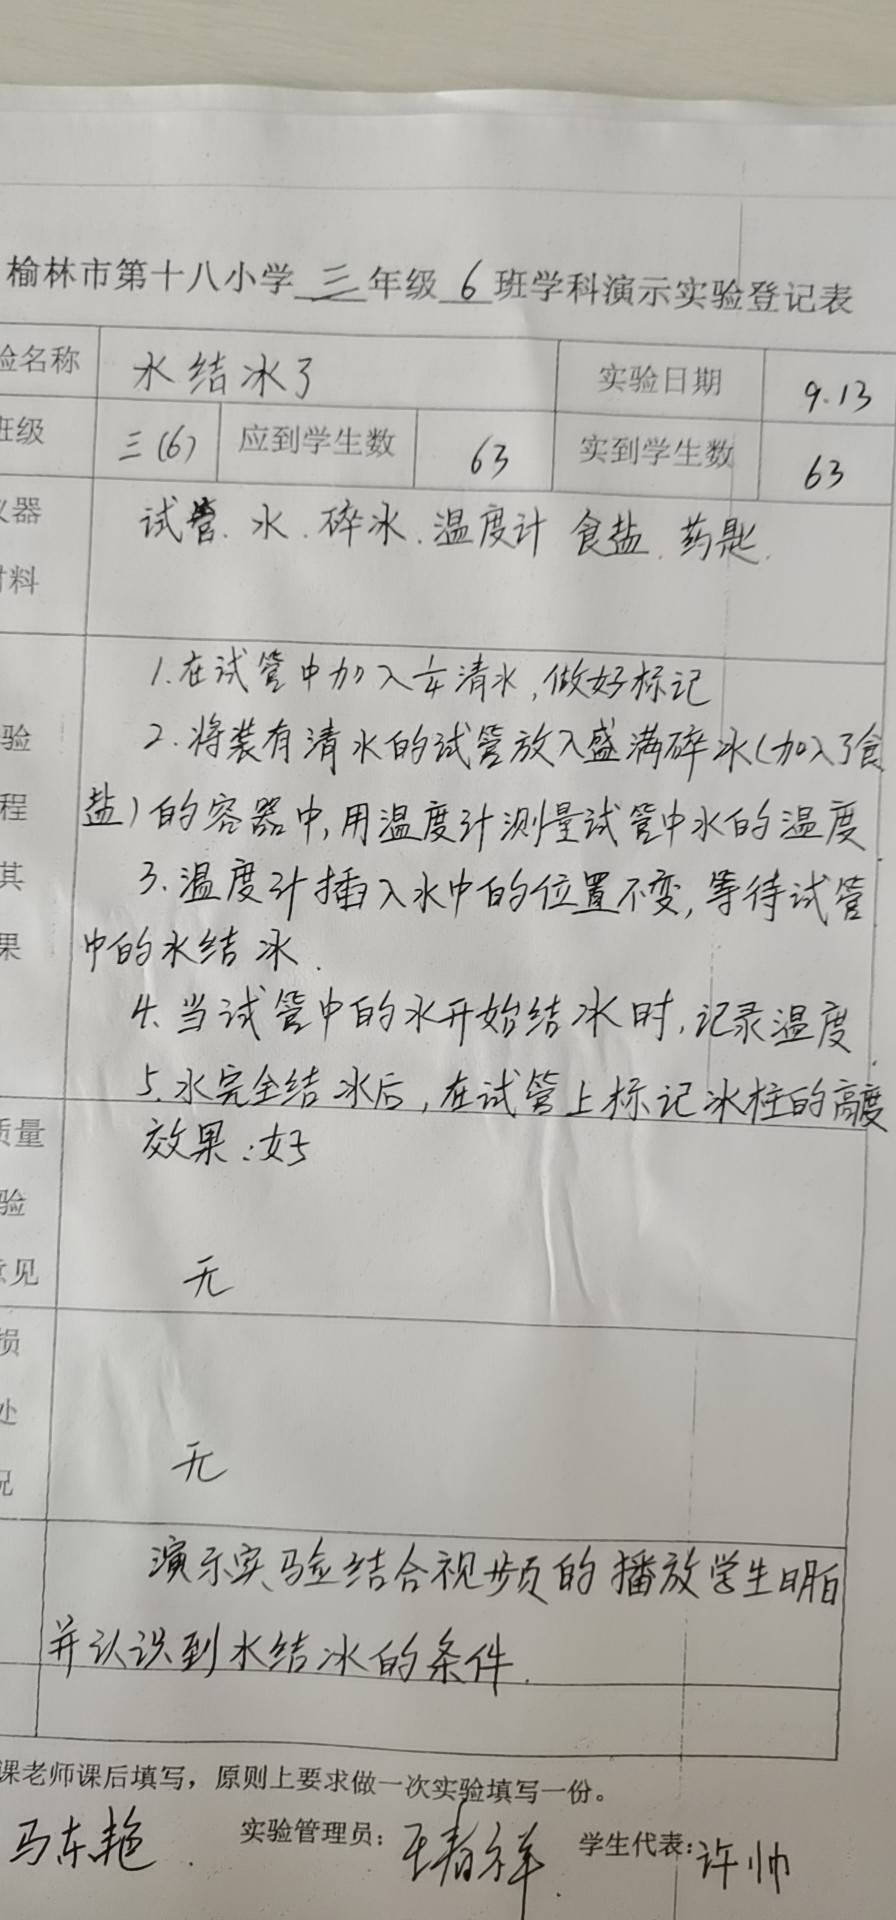 榆林市第十八小学 三 年级 6 班学科演示实验登记表
验名称 水结冰了 实验日期 9.13
班级 三(6) 应到学生数 63 实到学生数 63
仪器 试管. 水. 碎冰. 温度计 食盐. 药匙.
材料
1.在试管中加入1/4清水,做好标记
验 2.将装有清水的试管放入盛满碎冰(加入了食
程 盐)的容器中,用温度计测量试管中水的温度
其 3.温度计插入水中的位置不变,等待试管
果 中的水结冰.
4.当试管中的水开始结冰时,记录温度
5.水完全结冰后,在试管上标记冰柱的高度
质量 效果:好
验
意见 无
损
处
况 无
演示实验结合视频的播放学生明白
并认识到水结冰的条件.
课老师课后填写，原则上要求做一次实验填写一份。
马东艳 实验管理员: 王春祥 学生代表: 许帅